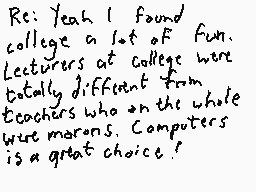 Re: Yeah I found
college a lot of fun.
Lecturers at college were
totally different from
teachers who on the whole
were morons. Computers
is a great choice!